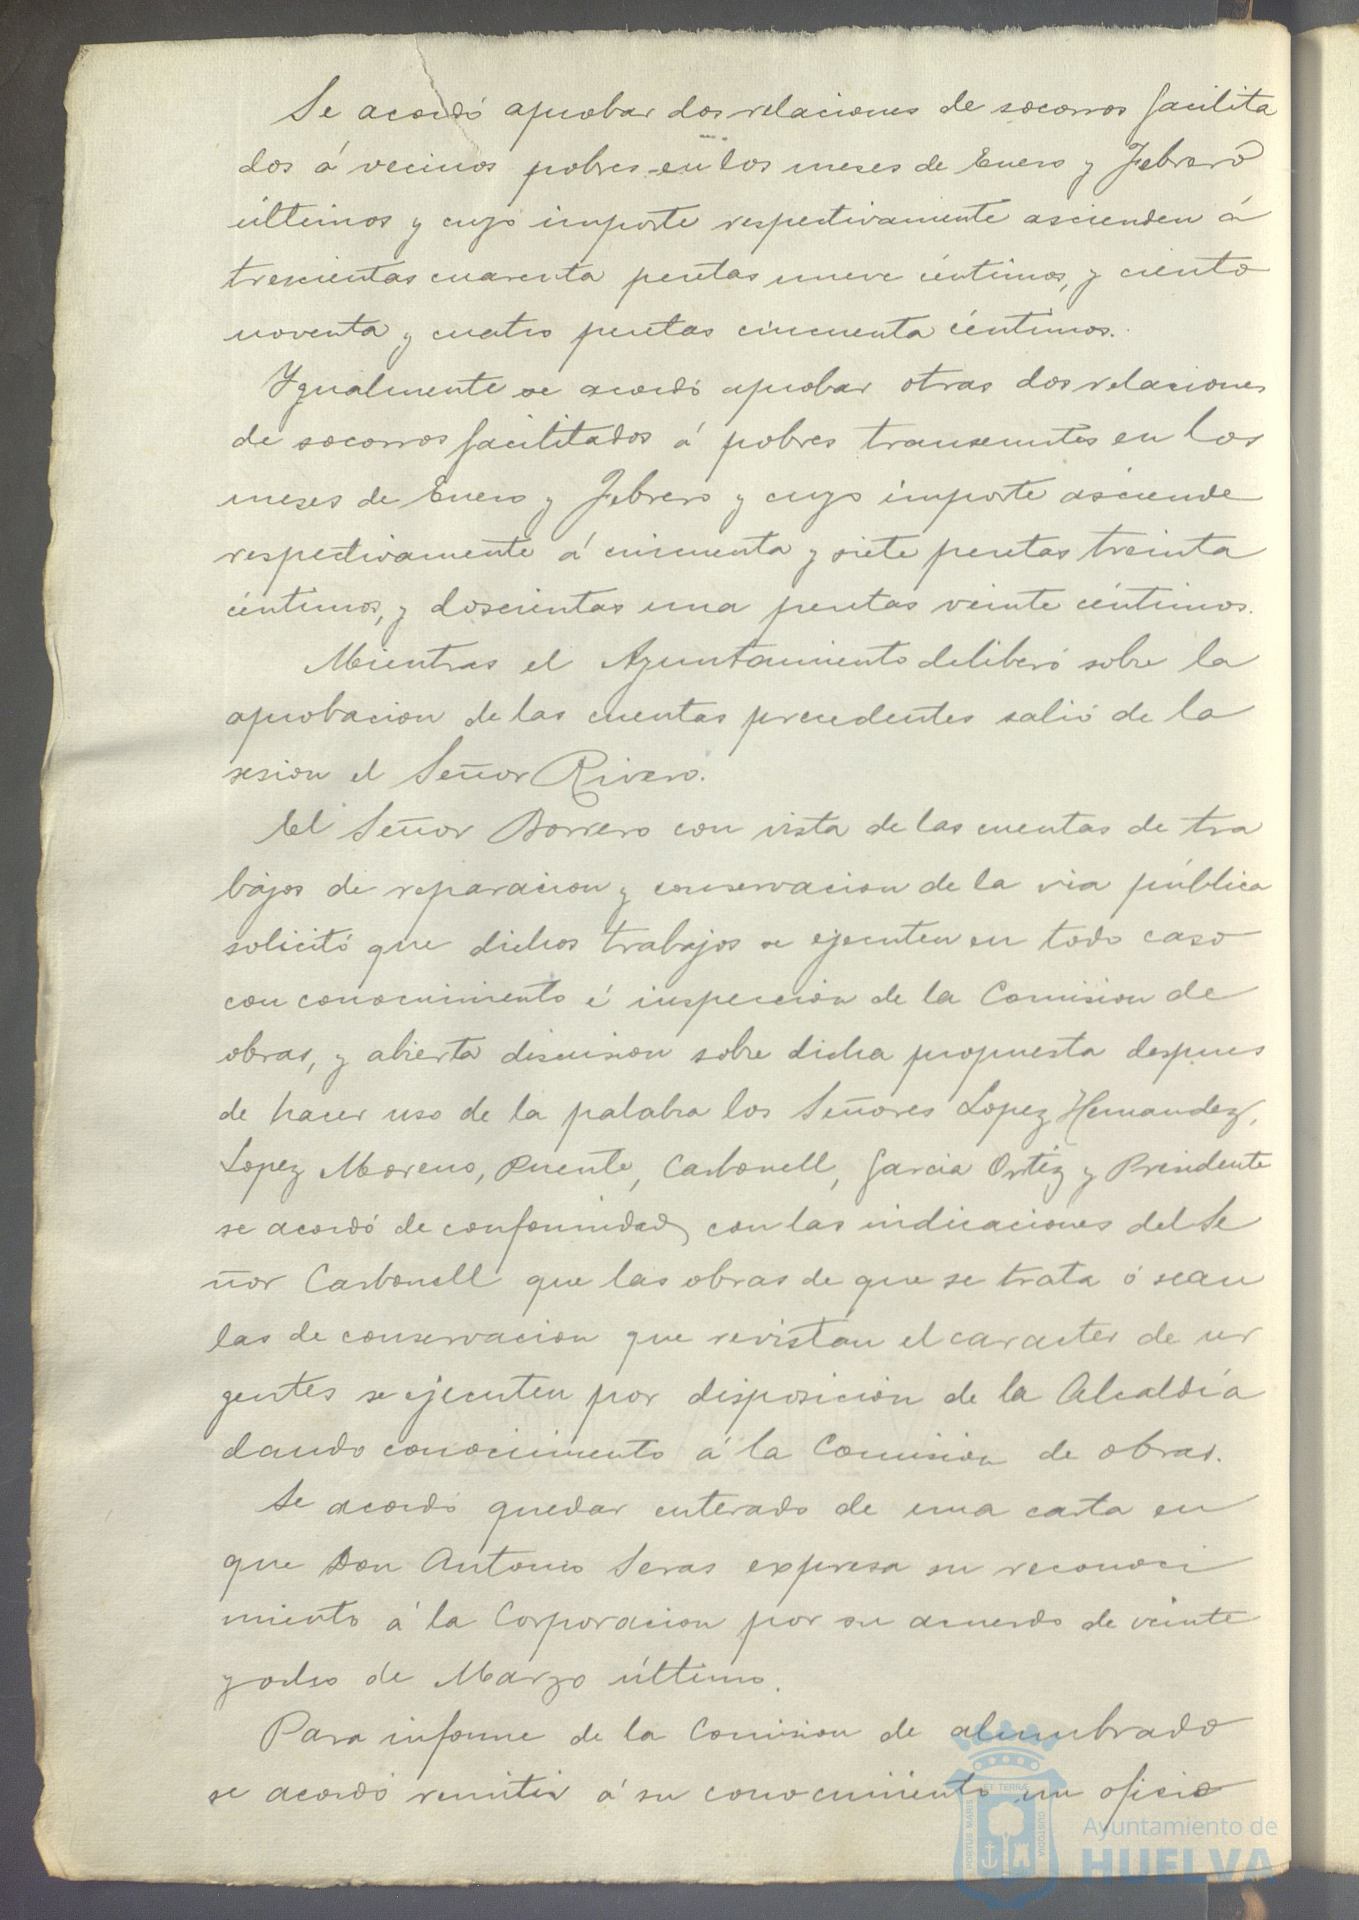 Se acordó aprobar dos relaciones de socorros facilita
dos á vecinos pobres en los meses de Enero y Febrero
últimos y cuyo importe respectivamente ascienden á
trescientas cuarenta pesetas nueve céntimos, y ciento
noventa y cuatro pesetas cincuenta céntimos.
Ygualmente se acordó aprobar otras dos relaciones
de socorros facilitados á pobres transeuntes en los
meses de Enero y Febrero y cuyo importe asciende
respectivamente á cincuenta y siete pesetas treinta
céntimos, y doscientas una pesetas veinte céntimos.
Mientras el Ayuntamiento deliberó sobre la
aprobacion de las cuentas precedentes salió de la
sesion el Señor Rivero.
El Señor Borrero con vista de las cuentas de tra
bajos de reparacion y conservacion de la via pública
solicitó que dichos trabajos se ejecuten en todo caso
con conocimiento é inspeccion de la Comision de
obras, y abierta discusion sobre dicha propuesta despues
de hacer uso de la palabra los Señores Lopez Hernandez,
Lopez Moreno, Puente, Carbonell, Garcia Ortiz y Presidente
se acordó de conformidad con las indicaciones del Se
ñor Carbonell que las obras de que se trata ó sean
las de conservacion que revistan el caracter de ur
gentes se ejecuten por disposicion de la Alcaldía
dando conocimiento á la Comision de obras.
Se acordó quedar enterado de una carta en
que Don Antonio Seras expresa su reconoci
miento á la Corporacion por su acuerdo de veinte
y ocho de Marzo último.
Para informe de la Comision de alumbrado
se acordó remitir á su conocimiento un oficio
PORTUS MARIS ET TERRÆ CUSTODIA
Ayuntamiento de
HUELVA